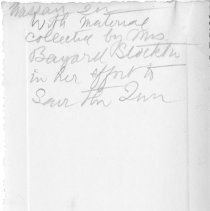 Nassau Inn
With material
collected by Mrs
Bayard Stockton
in her effort to
Save the Inn